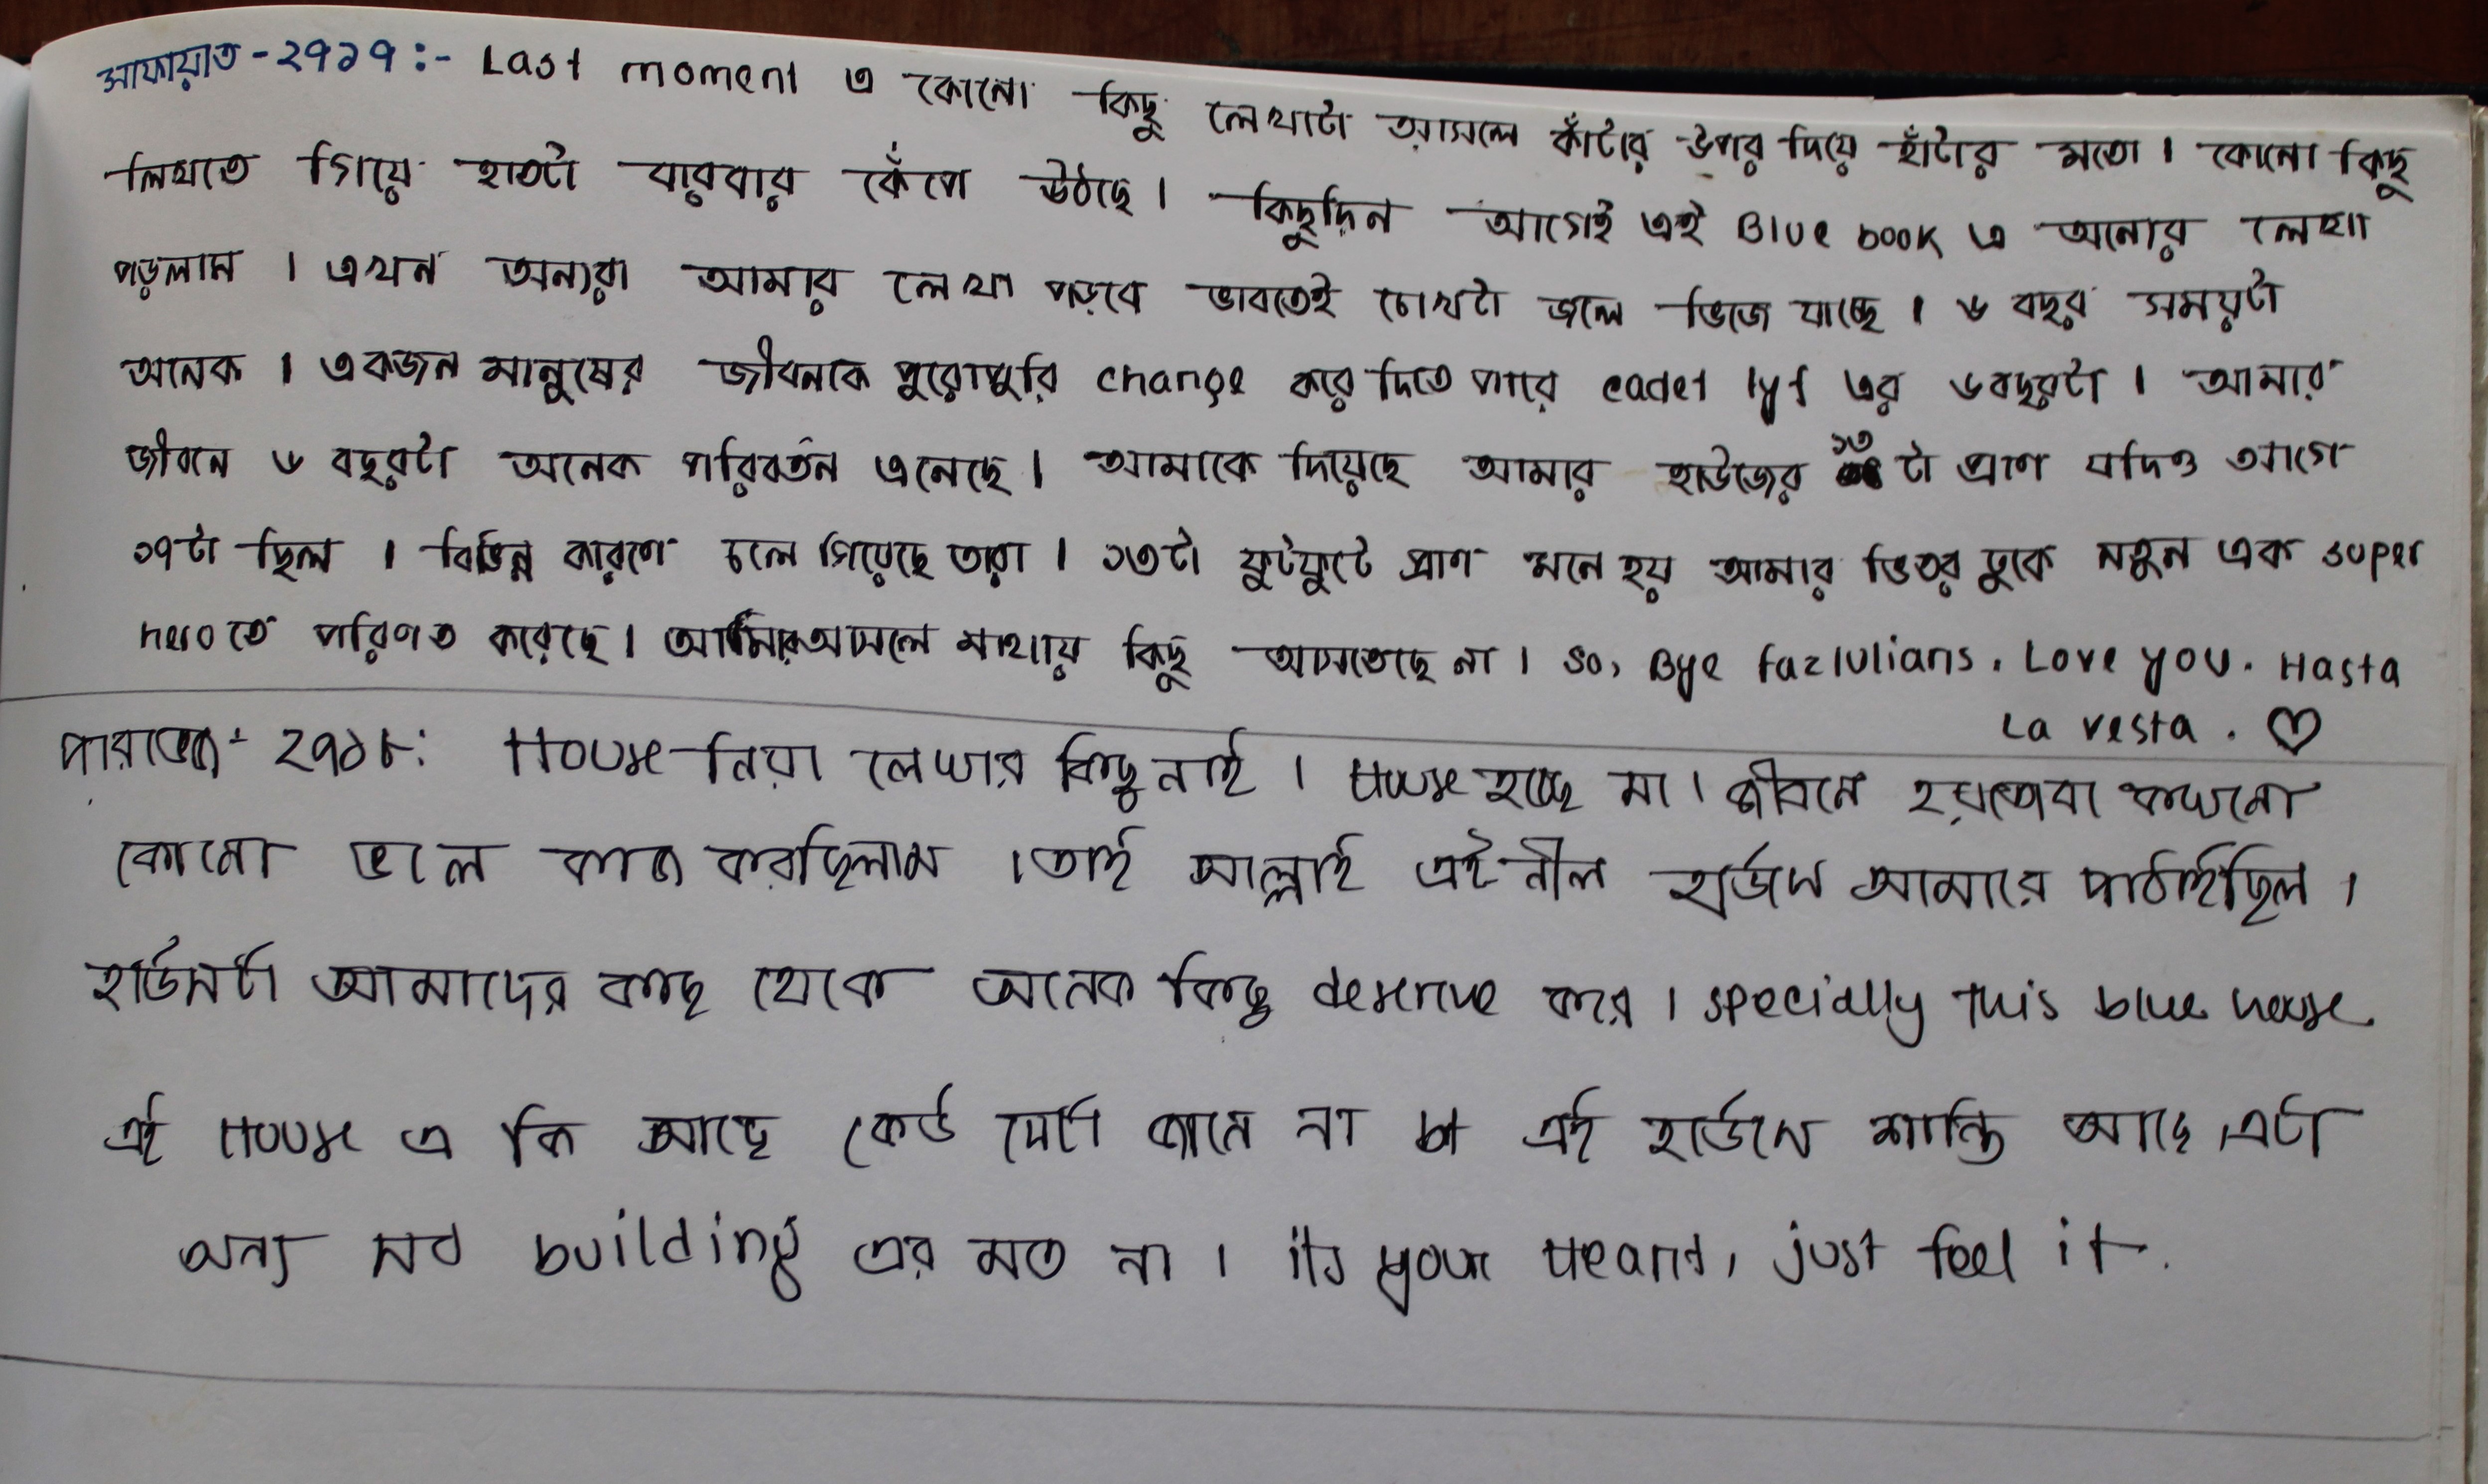 সাফায়াত - ২৭১৭ :- Last moment এ কোনো কিছু লেখাটা আসলে কাঁটার উপর দিয়ে হাঁটার মতো। কোনো কিছু
লিখতে গিয়ে হাতটা বারবার কেঁপে উঠছে। কিছুদিন আগেই এই Blue book এ অন্যের লেখা
পড়লাম। এখন অন্যরা আমার লেখা পড়বে ভাবতেই চোখটা জলে ভিজে যাচ্ছে। ৬ বছর সময়টা
অনেক। একজন মানুষের জীবনকে পুরোপুরি change করে দিতে পারে cadet lyf এর ৬বছরটা। আমার
জীবনে ৬ বছরটা অনেক পরিবর্তন এনেছে। আমাকে দিয়েছে আমার হাউজের ১৩ টা প্রাণ যদিও আগে
১৭টা ছিল। বিভিন্ন কারণে চলে গিয়েছে তারা। ১৩টা ফুটফুটে প্রাণ মনে হয় আমার ভিতর ঢুকে নতুন এক super
hero তে পরিণত করেছে। আসলে মাথায় কিছু আসতেছে না। So, Bye fazlulians. Love you. Hasta
La vesta. ♡
২৭১৮: House নিয়া লেখার কিছু নাই। House হচ্ছে মা। জীবনে হয়তোবা কখনো
কোনো ভালো কাজ করছিলাম। তাই আল্লাহ এই নীল হাউজে আমারে পাঠাইছিল।
হাউসটা আমাদের কাছ থেকে অনেক কিছু deserve করে। specially this blue house
এই House এ কি আছে কেউ সেটা জানে না but এই হাউসে শান্তি আছে, এটা
অন্য সব building এর মত না। its your Heart, just feel it.